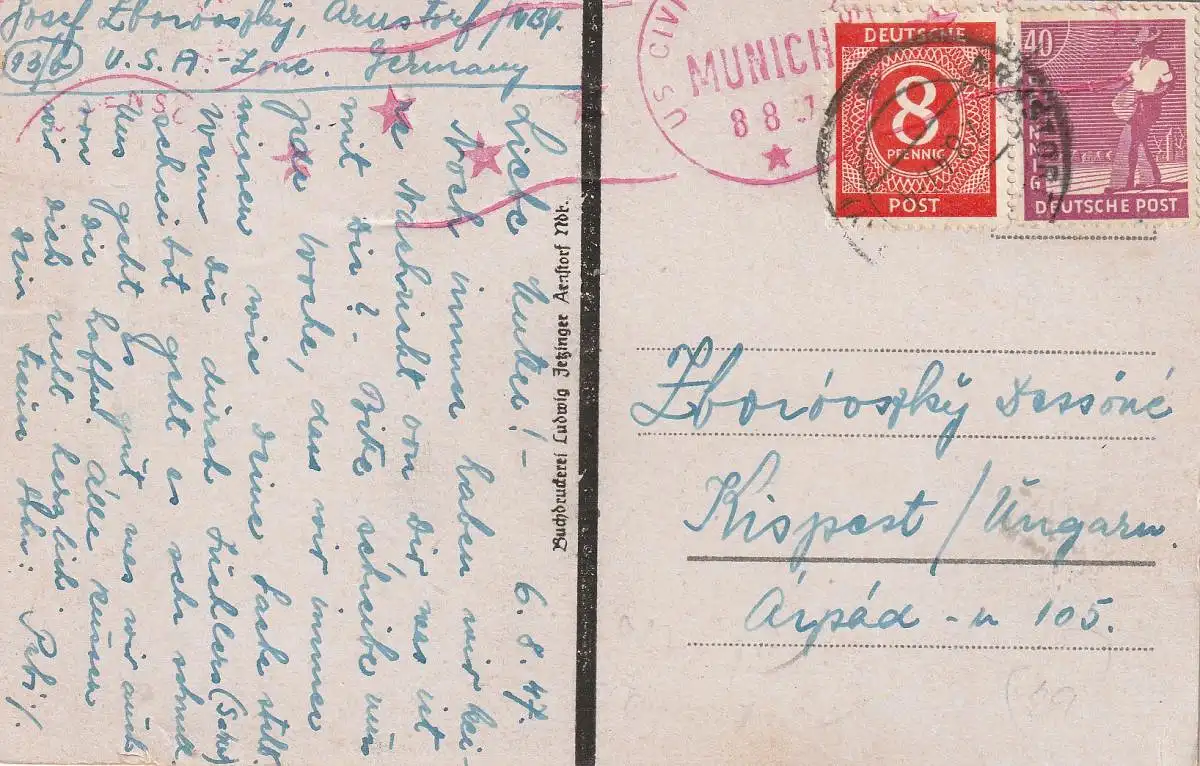 Josef Zboróvszky, Arnstorf/NBY.
13/b U.S.A.-Zone. Germany
6. 8. 47.
Liebe Mutter! -
Noch immer haben wir kei-
ne Nachricht von Dir was ist
mit Dir? - Bitte schreibe uns
jede Woche, das wir immer
wissen wie deine Sache steht.
Wenn du durch
schreibst geht es sehr schnell.
Uns geht es gut was wir auch
von Dir hoffen. Alle küssen
wir Dich recht herzlich.
Dein
Buchdruckerei Ludwig Jetzinger Arnstorf Ndb.
US CIVI
MUNICH
8 8
DEUTSCHE
8
PFENNIG
POST
40
PFENNIG
DEUTSCHE POST
ARNSTORF
Zboróvszky Dessőné
Kispest / Ungarn.
Árpád - u 105.